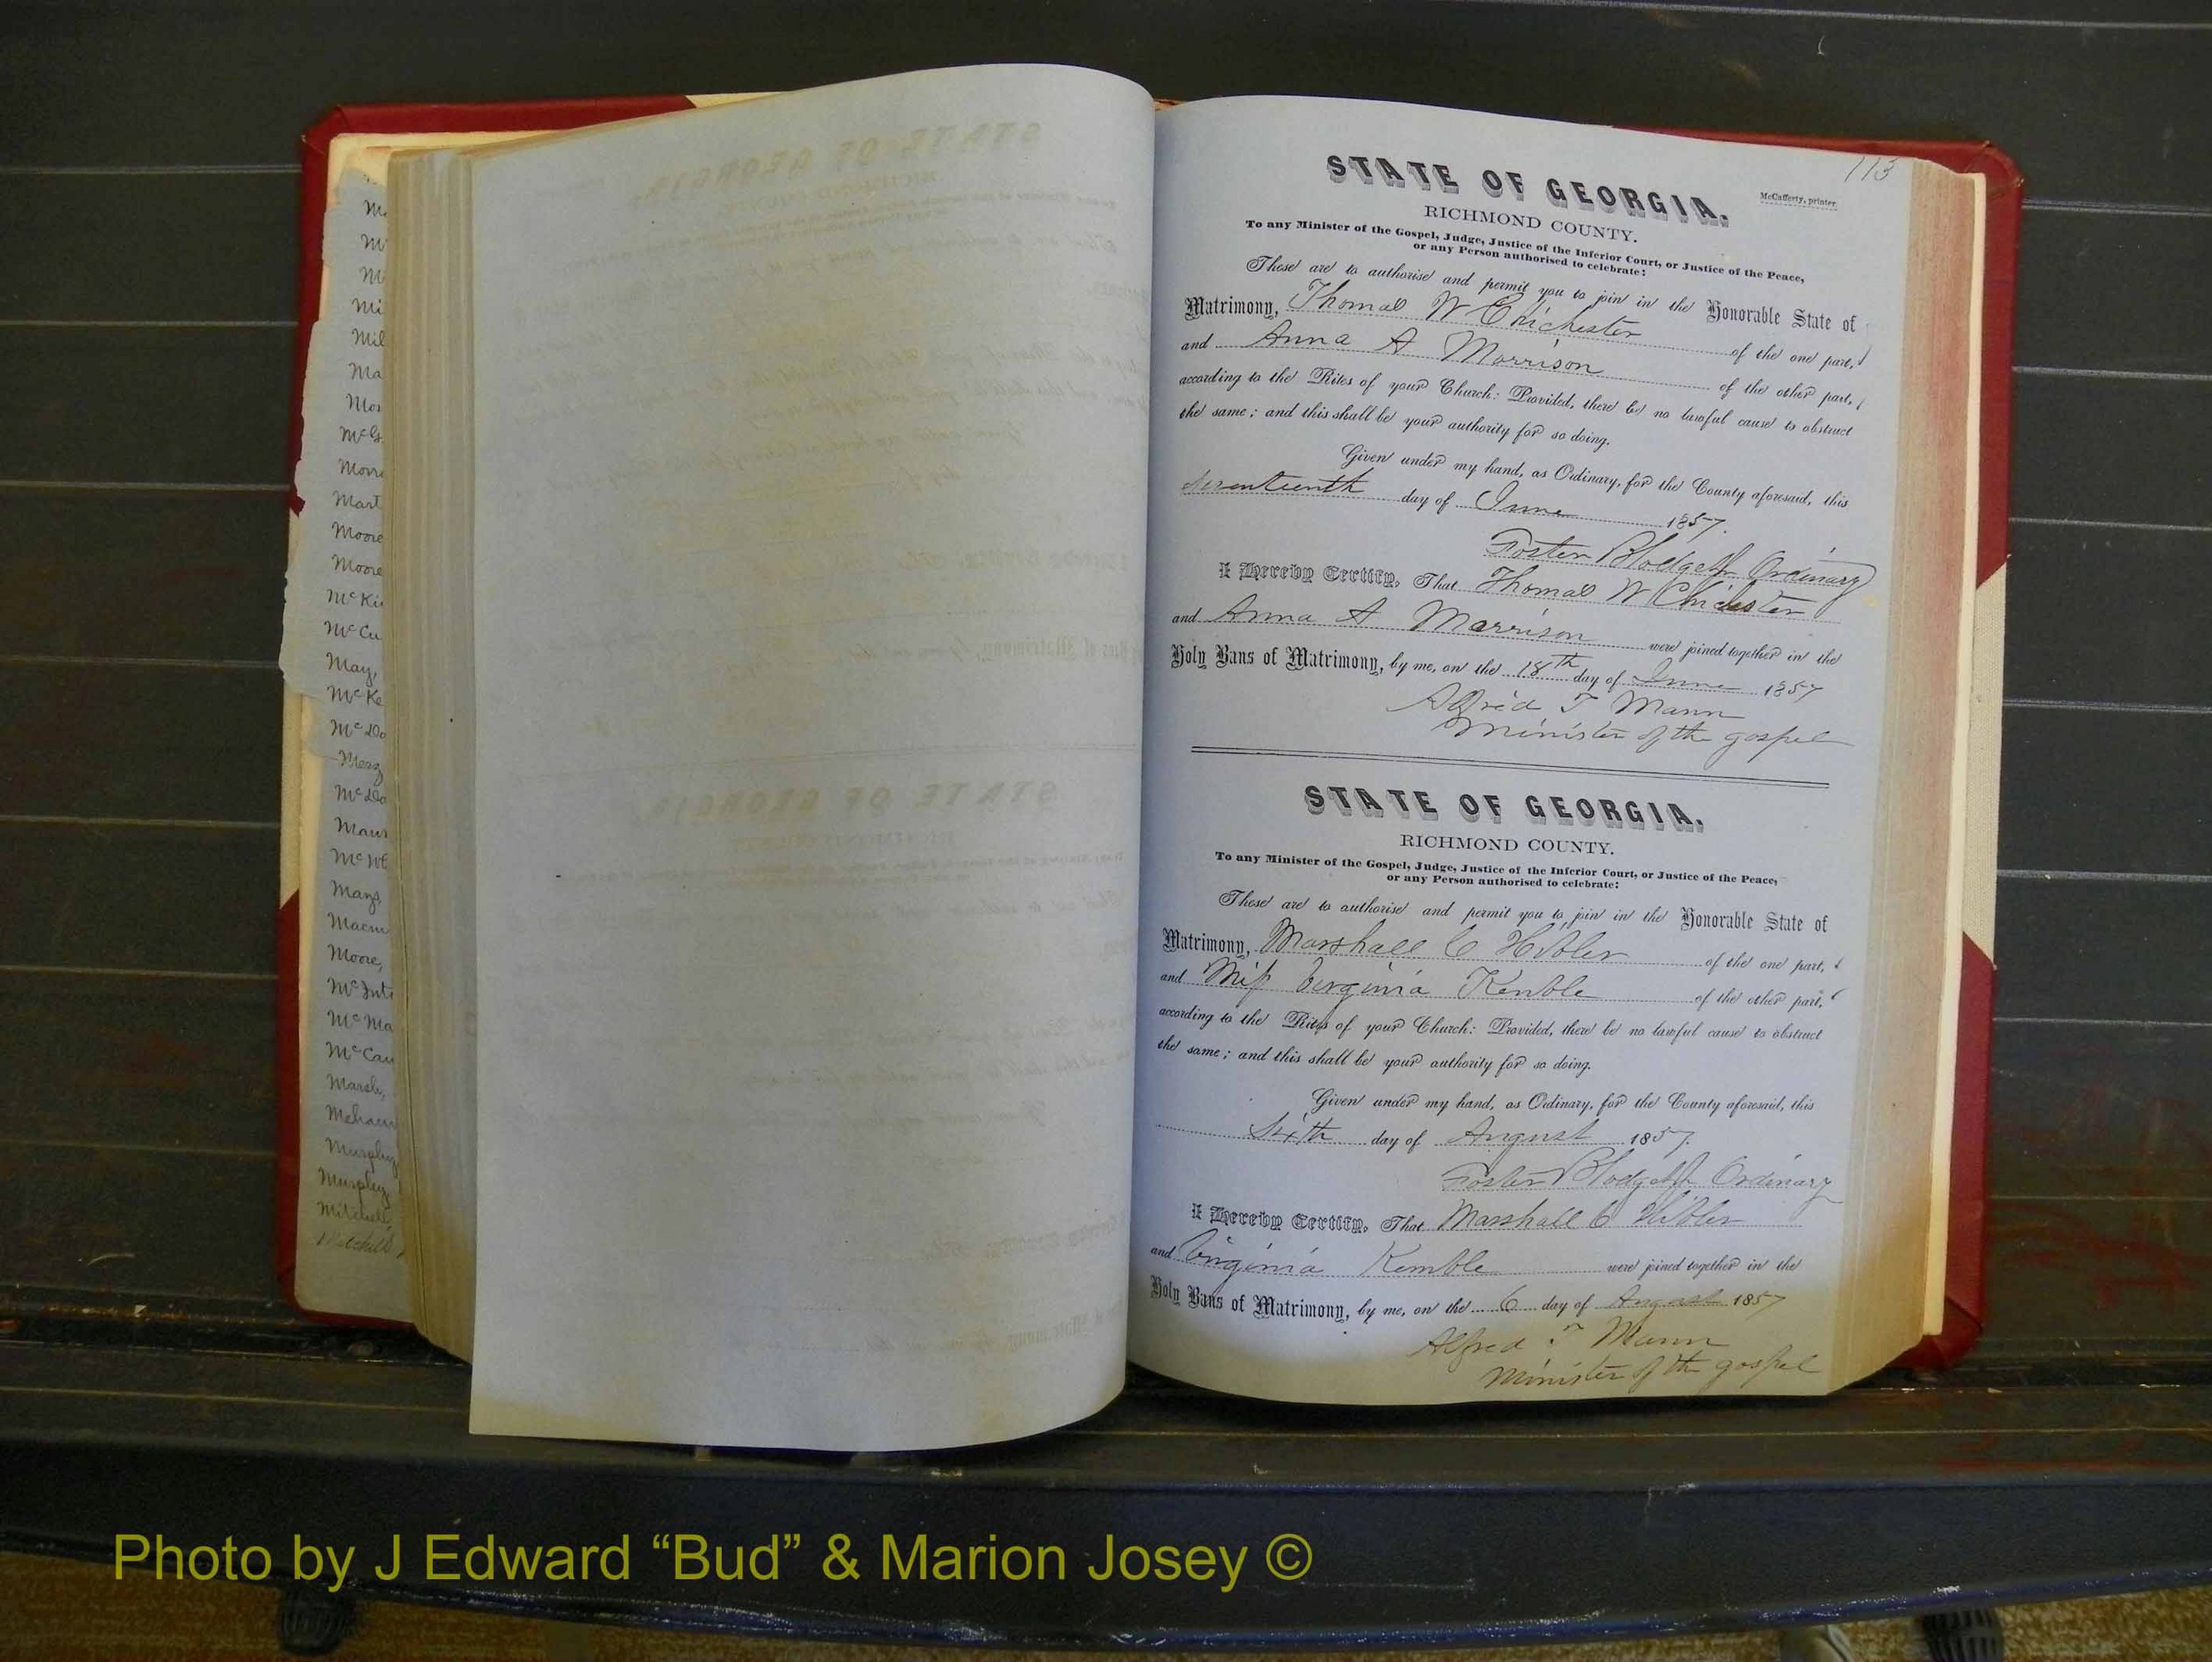 Mi
Mil
Ma
Mor
McG
Morr
Mart
Moore
Moore
McKi
McCu
May,
McKe
McDo
McDo
Maur
Mays,
Macm
Moore,
McInt
McMa
McCan
Marsh,
Murphy
Murphy
Mitchell,
Mitchell
113
STATE OF GEORGIA.
McCafferty, printer
RICHMOND COUNTY.
To any Minister of the Gospel, Judge, Justice of the Inferior Court, or Justice of the Peace,
or any Person authorised to celebrate:
These are to authorise and permit you to join in the Honorable State of
Matrimony, Thomas W Chichester of the one part,
and Anna A Morrison of the other part,
according to the Rites of your Church: Provided, there be no lawful cause to obstruct
the same; and this shall be your authority for so doing.
Given under my hand, as Ordinary, for the County aforesaid, this
Seventeenth day of June 1857.
Foster Blodget Jr Ordinary
I Hereby Certify, That Thomas W Chichester
and Anna A Morrison were joined together in the
Holy Bans of Matrimony, by me, on the 18th day of June 1857
Alfred T Mann
Minister of the gospel
STATE OF GEORGIA.
RICHMOND COUNTY.
To any Minister of the Gospel, Judge, Justice of the Inferior Court, or Justice of the Peace,
or any Person authorised to celebrate:
These are to authorise and permit you to join in the Honorable State of
Matrimony, Marshall C Hibler of the one part,
and Miss Virginia Kenble of the other part,
according to the Rites of your Church: Provided, there be no lawful cause to obstruct
the same; and this shall be your authority for so doing.
Given under my hand, as Ordinary, for the County aforesaid, this
Sixth day of August 1857.
Foster Blodget Jr Ordinary
I Hereby Certify, That Marshall C Hibler
and Virginia Kemble were joined together in the
Holy Bans of Matrimony, by me, on the 6 day of August 1857
Alfred T Mann
Minister of the gospel
Photo by J Edward “Bud” & Marion Josey ©